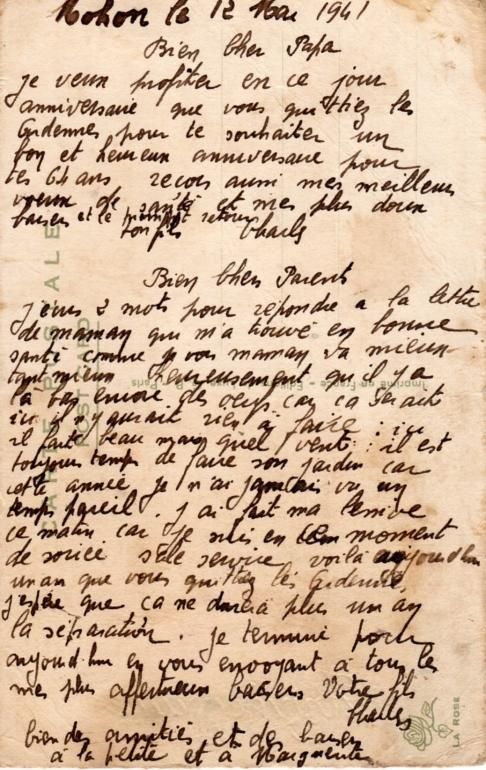 Mohon le 12 Mai 1941
Bien Cher Papa
je veux profiter en ce jour
anniversaire que vous quittiez les
Ardennes pour te souhaiter un
bon et heureux anniversaire pour
tes 64 ans recois aussi mes meilleurs
voeux de santé et mes plus doux
baiser et le prompt retour
ton fils Charls
Bien Chers Parents
j'écris 2 mots pour répondre a la lettre
de maman qui m'a trouvé en bonne
santé comme je vois maman va mieux
tant mieux heureusement qu'il y a
là bas encore des oeufs car ca serait
ici il n'y aurait rien a faire : ici
il faite beau mais quel vent : il est
toujours temps de faire son jardin car
cette année je n'ai jamais vu un
temps pareil . j'ai fait ma lessive
ce matin car je suis en ce moment
de soirée service voilà aujourd'hui
un an que vous quittiez les Ardennes,
j'espère que ca ne durera plus un an
la séparation . je termine pour
aujourd'hui en vous envoyant à tous les
mes plus affectueux baisers Votre fils
Charls
bien des amitiés et de baisers
à la petite et à Marguerite
CARTE POSTALE
POST CARD
Imprimé en France - Edit - Paris
LA ROSE